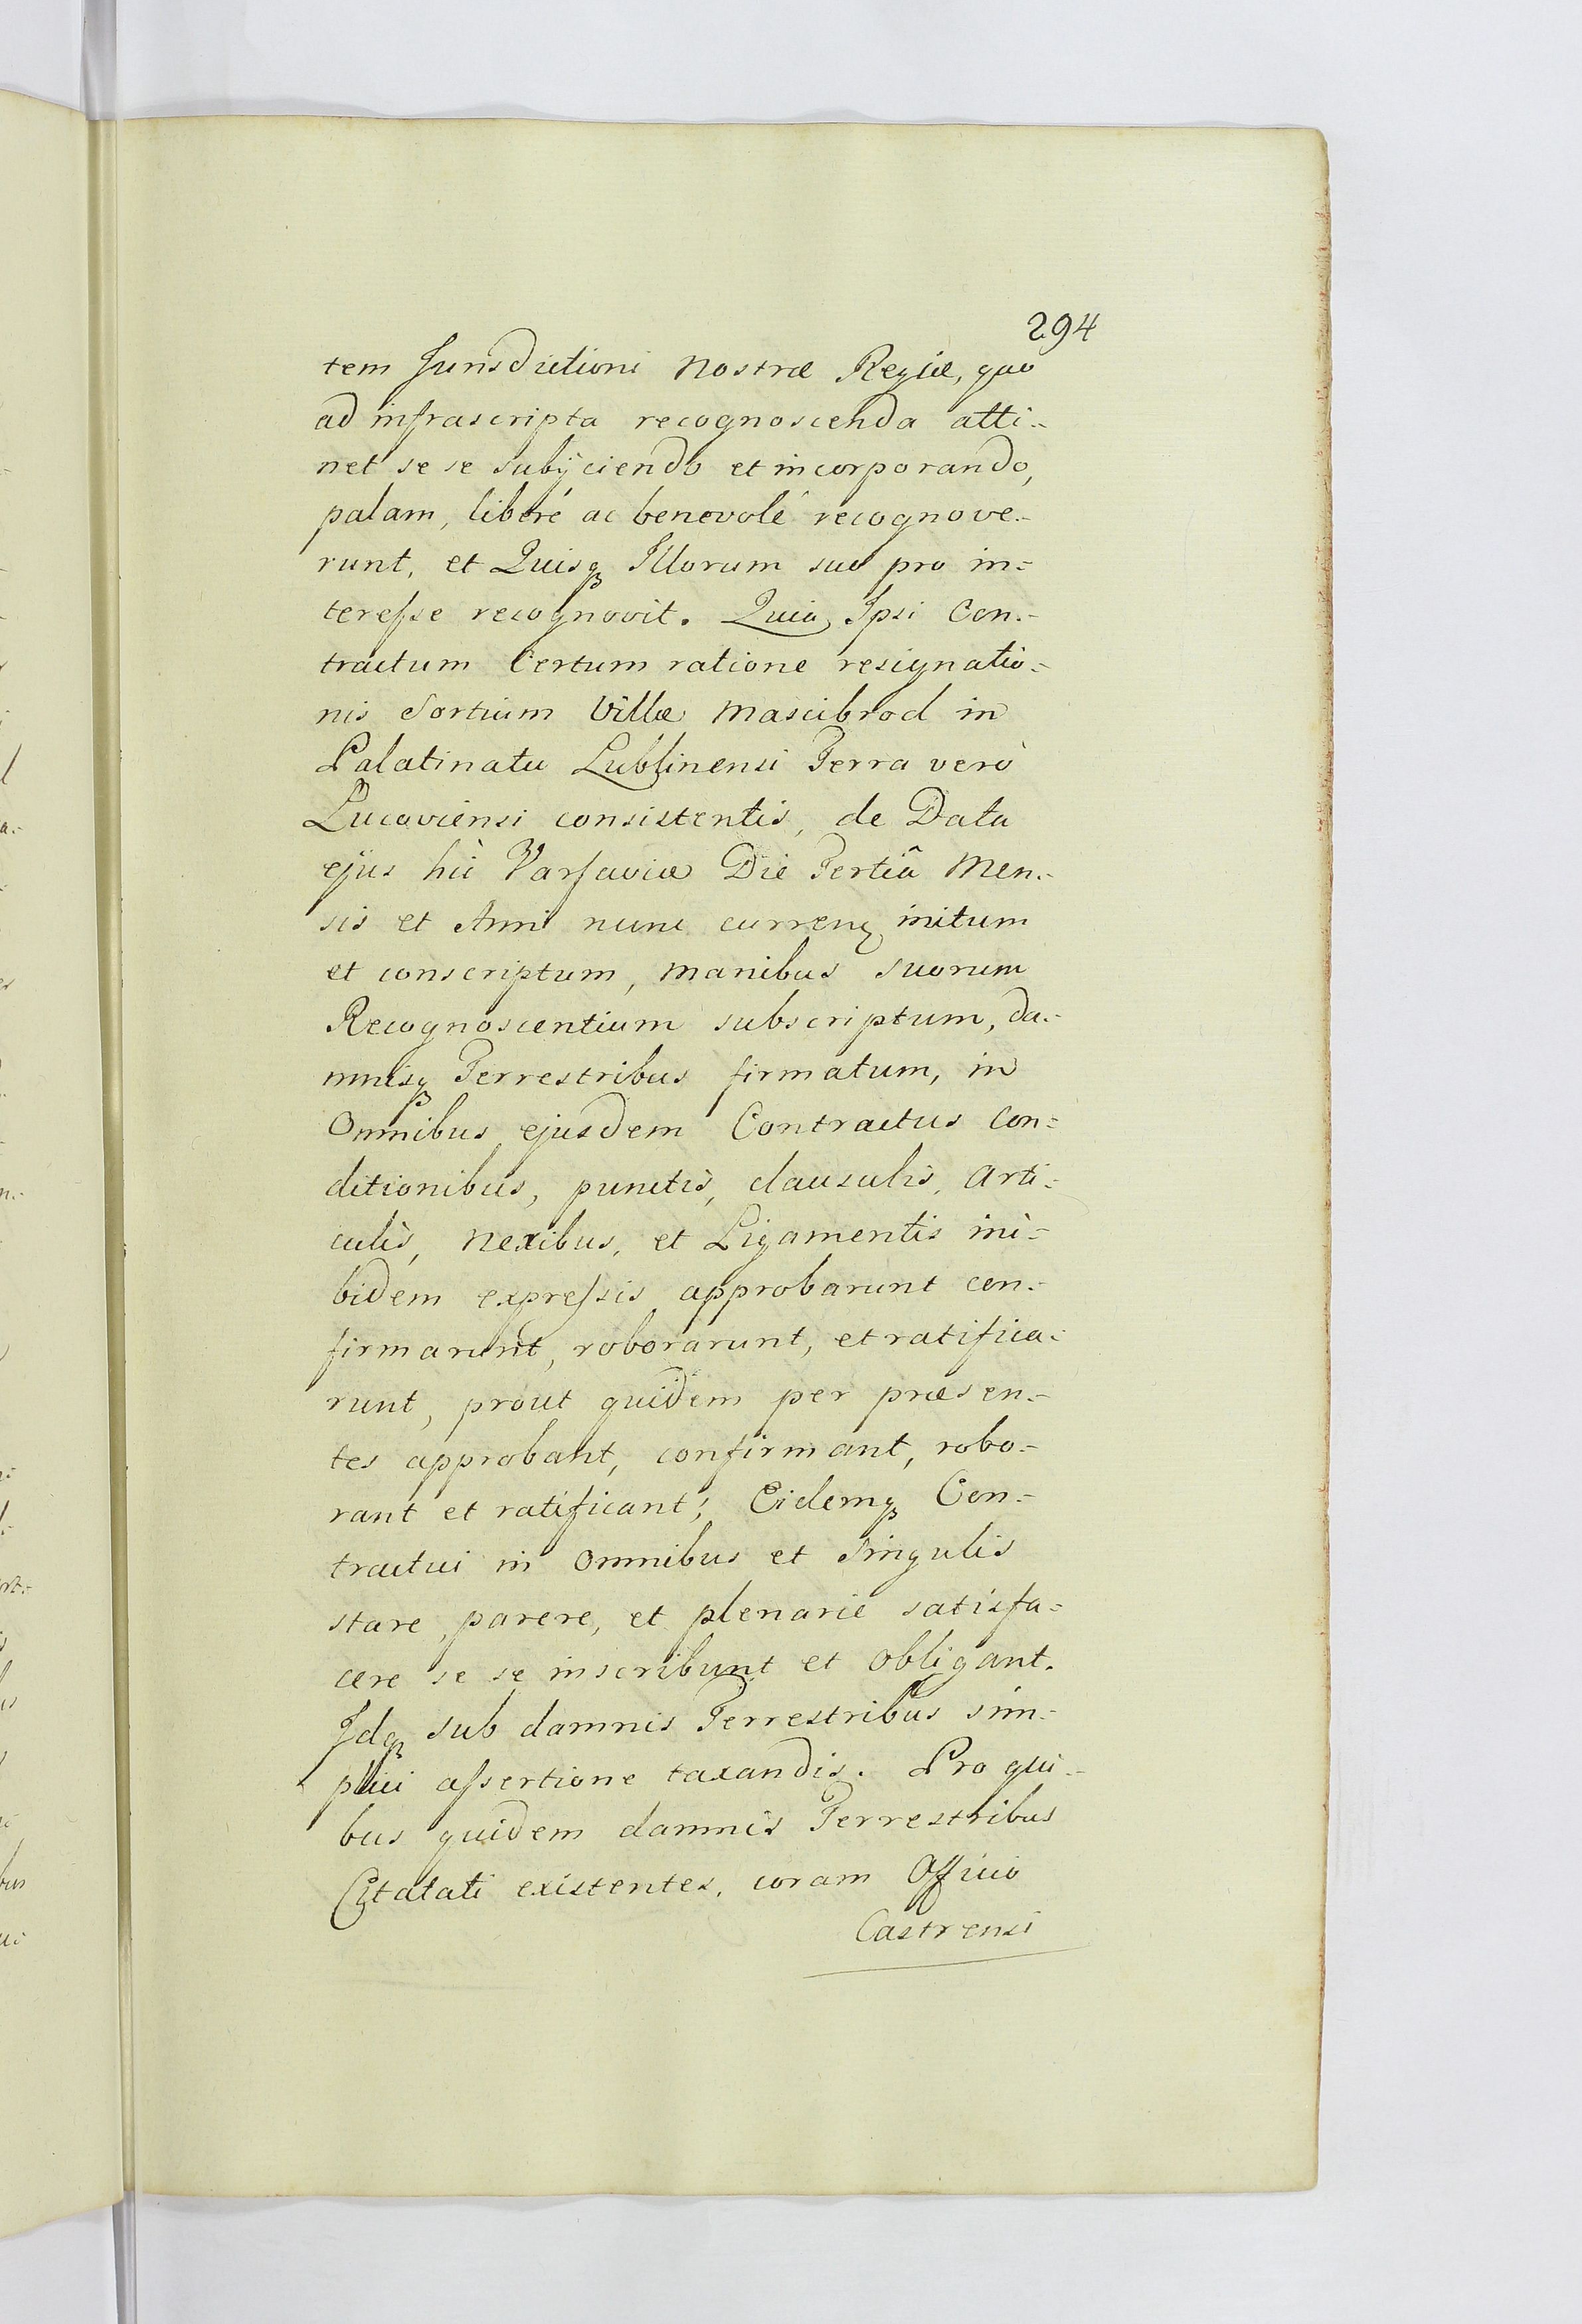 294
tem Jurisdictioni Nostræ Regiæ, quo
ad infrascripta recognoscenda atti-
net se se subijciendo et incorporando,
palam, liberé ac benevolé recognove-
runt, et Quisqꝫ Illorum suo pro in=
teresse recognovit. Quia Ipsi Con-
tractum Certum ratione resignatio=
nis Sortium Villæ Mascibrod in
Palatinatu Lublinensi Terra verò
Lucoviensi consistentis, de Data
ejus hìc Varsaviæ Die Tertiâ Men-
sis et Anni nunc curreñ initum
et conscriptum, manibus suorum
Recognoscentium subscriptum, da-
mnisqꝫ Terrestribus firmatum, in
Omnibus ejusdem Contractus Con=
ditionibus, punctis, clausulis, Arti=
culis, Nexibus, et Ligamentis ini=
bidem expressis approbarunt con-
firmarunt, roborarunt, et ratifica=
runt, prout quidem per præsen-
tes approbant, confirmant, robo-
rant et ratificant; Eidemqꝫ Con-
tractui in Omnibus et Singulis
stare, parere, et plenarie satisfa=
cere se se inscribunt et obligant.
Idqꝫ sub damnis Terrestribus sim-
plici assertione taxandis. Pro qui-
bus quidem damnis Terrestribus
Citatati existentes, coram Officio
Castrensi